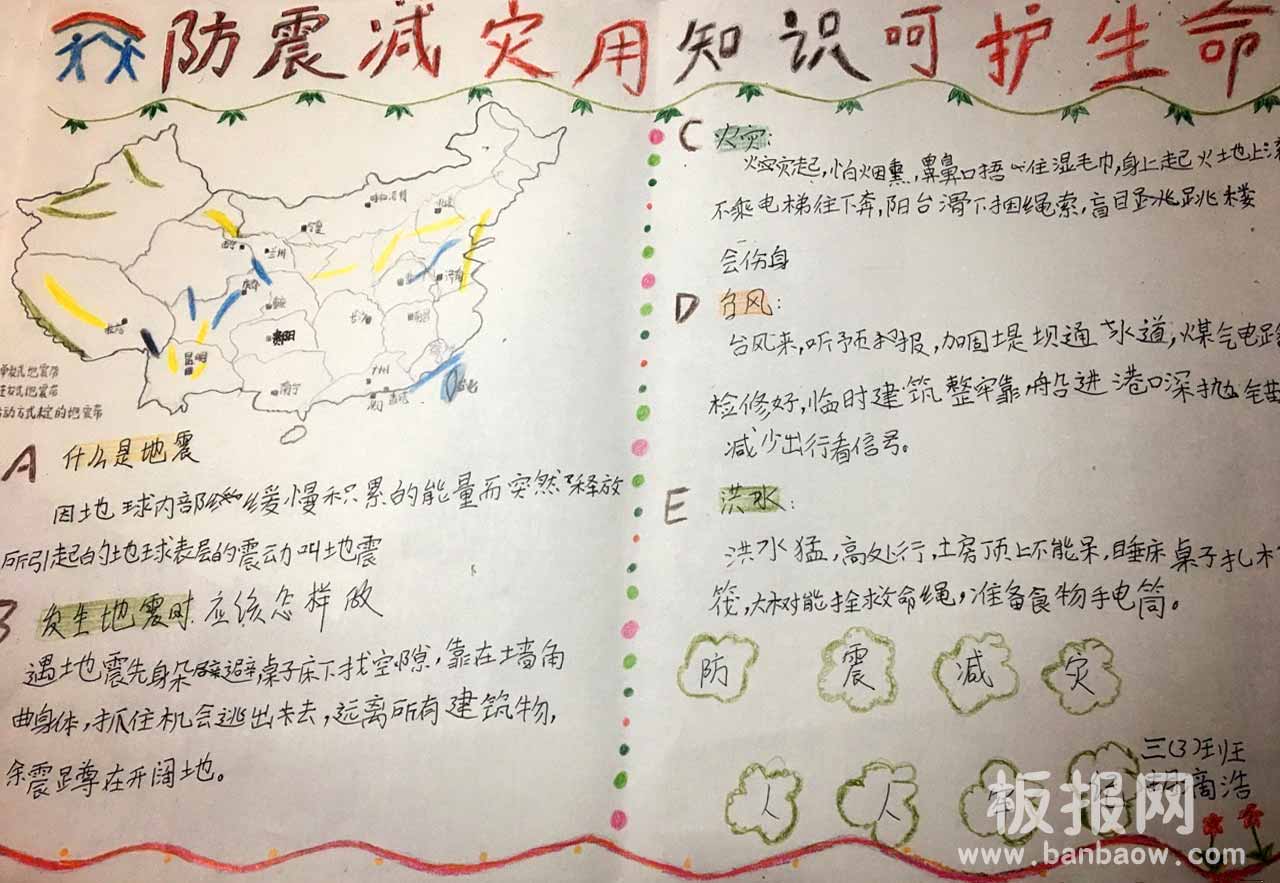 防震减灾用知识呵护生命
呼和浩特
北京
宁夏
西宁
兰州
济南
成都
拉萨
长沙
南昌
贵阳
昆明
广州
南宁
澳门
香港
台北
地震带
地震带
动方式未定的地震带
A 什么是地震
因地球内部缓慢积累的能量而突然释放
所引起的地球表层的震动叫地震
B 发生地震时应该怎样做
遇地震先身躲避,桌子床下找空隙,靠在墙角
曲身体,抓住机会逃出去,远离所有建筑物,
余震蹲在开阔地。
C 火灾:
火灾起,怕烟熏,鼻口捂住湿毛巾,身上起火地上滚
不乘电梯往下奔,阳台滑下捆绳索,盲目跳楼
会伤身
D 台风:
台风来,听预报,加固堤坝通水道,煤气电路
检修好,临时建筑整牢靠,船进港口深抛锚
减少出行看信号。
E 洪水:
洪水猛,高处行,土房顶上不能呆,睡床桌子扎木
筏,大树能拴救命绳,准备食物手电筒。
防 震 减 灾
人 人
三(3)班
浩
板报网
www.banbaow.com